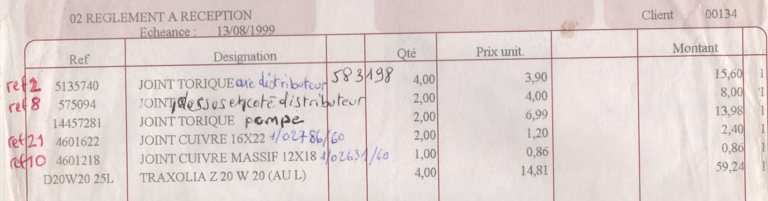 02 REGLEMENT A RECEPTION Client 00134
Echeance : 13/08/1999
Ref Designation Qté Prix unit. Montant
ref 2 5135740 JOINT TORIQUE axe distributeur 583198 4,00 3,90 15,60 1
ref 8 575094 JOINT dessus et coté distributeur 2,00 4,00 8,00 1
14457281 JOINT TORIQUE pompe 2,00 6,99 13,98 1
ref 21 4601622 JOINT CUIVRE 16X22 1/02786/60 2,00 1,20 2,40 1
ref 10 4601218 JOINT CUIVRE MASSIF 12X18 1/02631/60 1,00 0,86 0,86 1
D20W20 25L TRAXOLIA Z 20 W 20 (AU L) 4,00 14,81 59,24 1